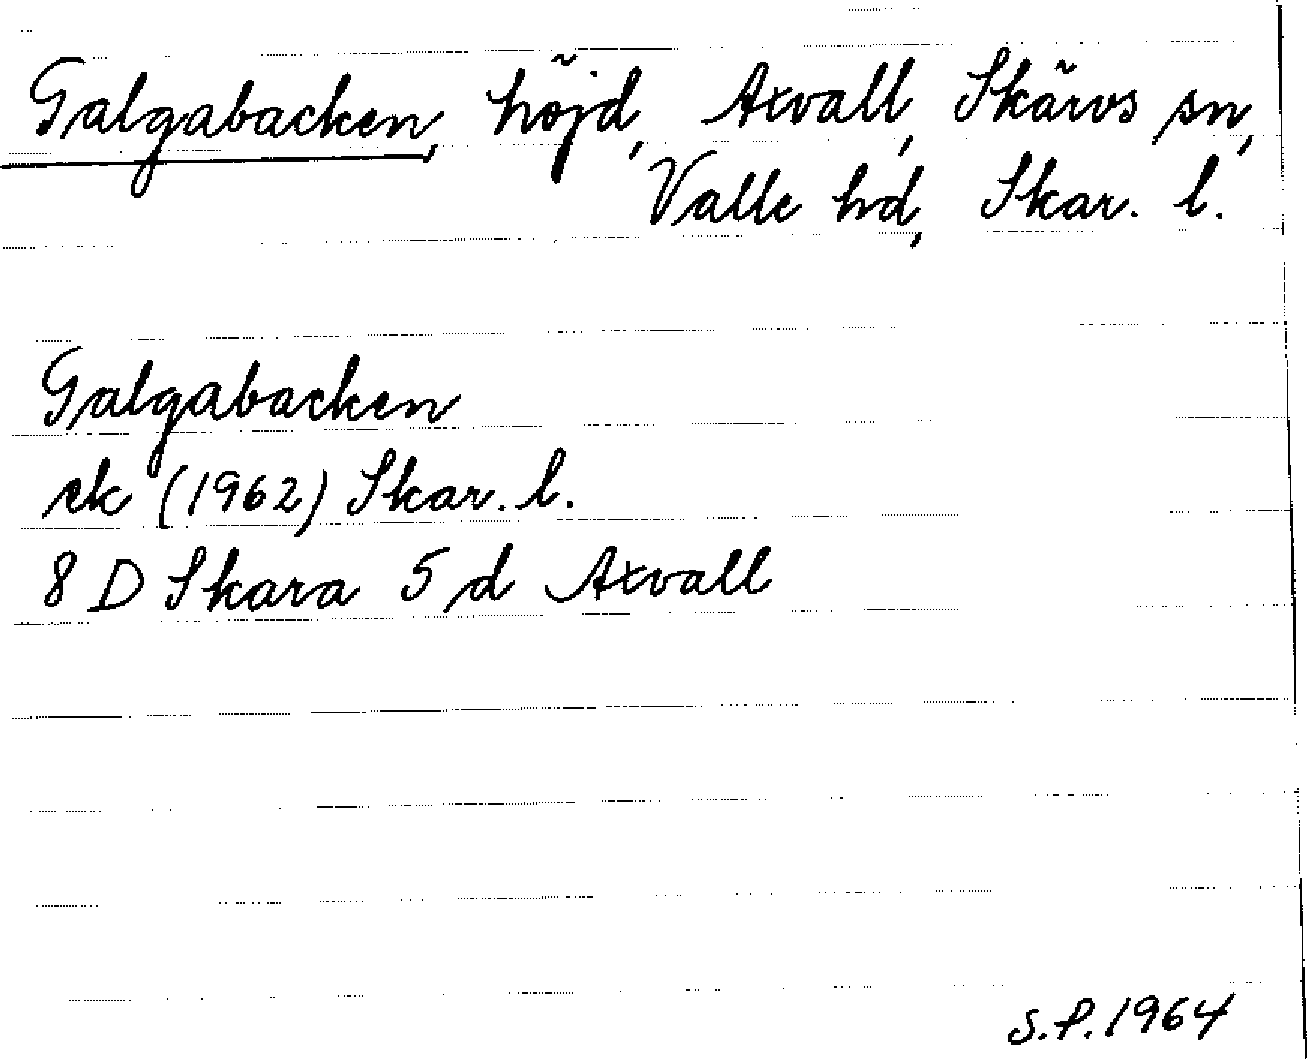 Galgabacken, höjd, Axvall, Skärvs sn,
Valle hd, Skar. l.
Galgabacken
ek (1962) Skar. l.
8 D Skara 5 d Axvall
S.P. 1964